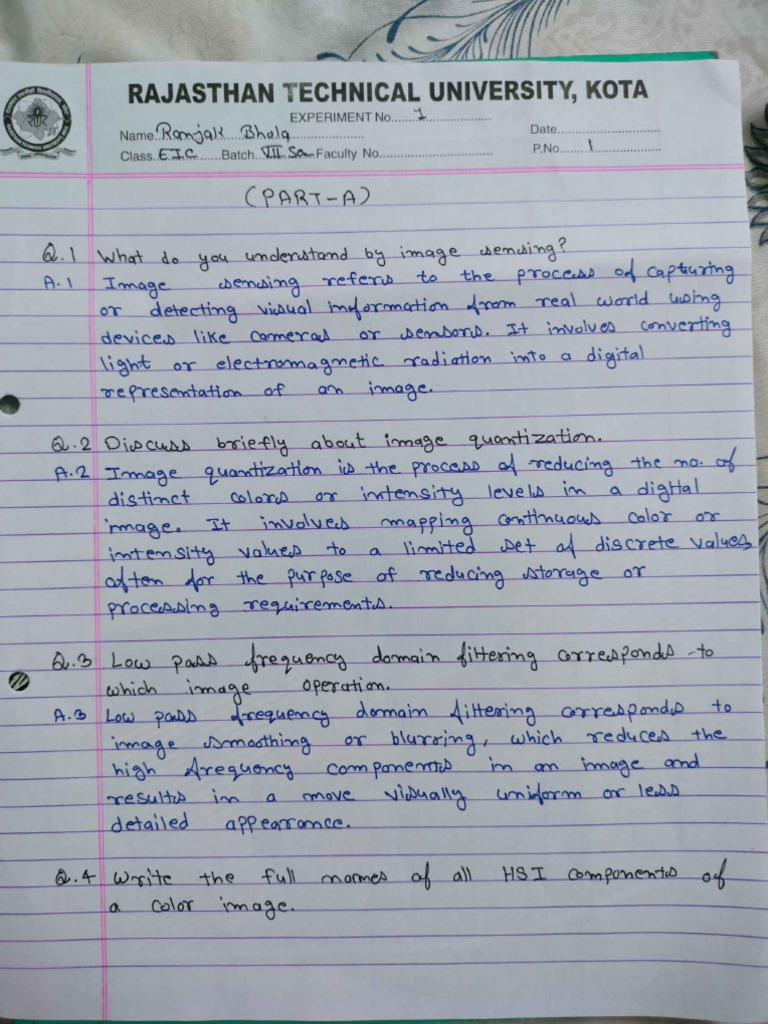 RAJASTHAN TECHNICAL UNIVERSITY, KOTA
EXPERIMENT No. 1
Name. Ramjak Bhala Date.
Class. EIC Batch. VII Sem Faculty No. P.No. 1
(PART-A)
Q.1 What do you understand by image sensing?
A.1 Image sensing refers to the process of capturing
or detecting visual information from real world using
devices like cameras or sensors. It involves converting
light or electromagnetic radiation into a digital
representation of an image.
Q.2 Discuss briefly about image quantization.
A.2 Image quantization is the process of reducing the no. of
distinct colors or intensity levels in a digital
image. It involves mapping continuous color or
intensity values to a limited set of discrete values
often for the purpose of reducing storage or
processing requirements.
Q.3 Low pass frequency domain filtering corresponds to
which image operation.
A.3 Low pass frequency domain filtering corresponds to
image smoothing or blurring, which reduces the
high frequency components in an image and
results in a move visually uniform or less
detailed appearance.
Q.4 Write the full names of all HSI components of
a color image.